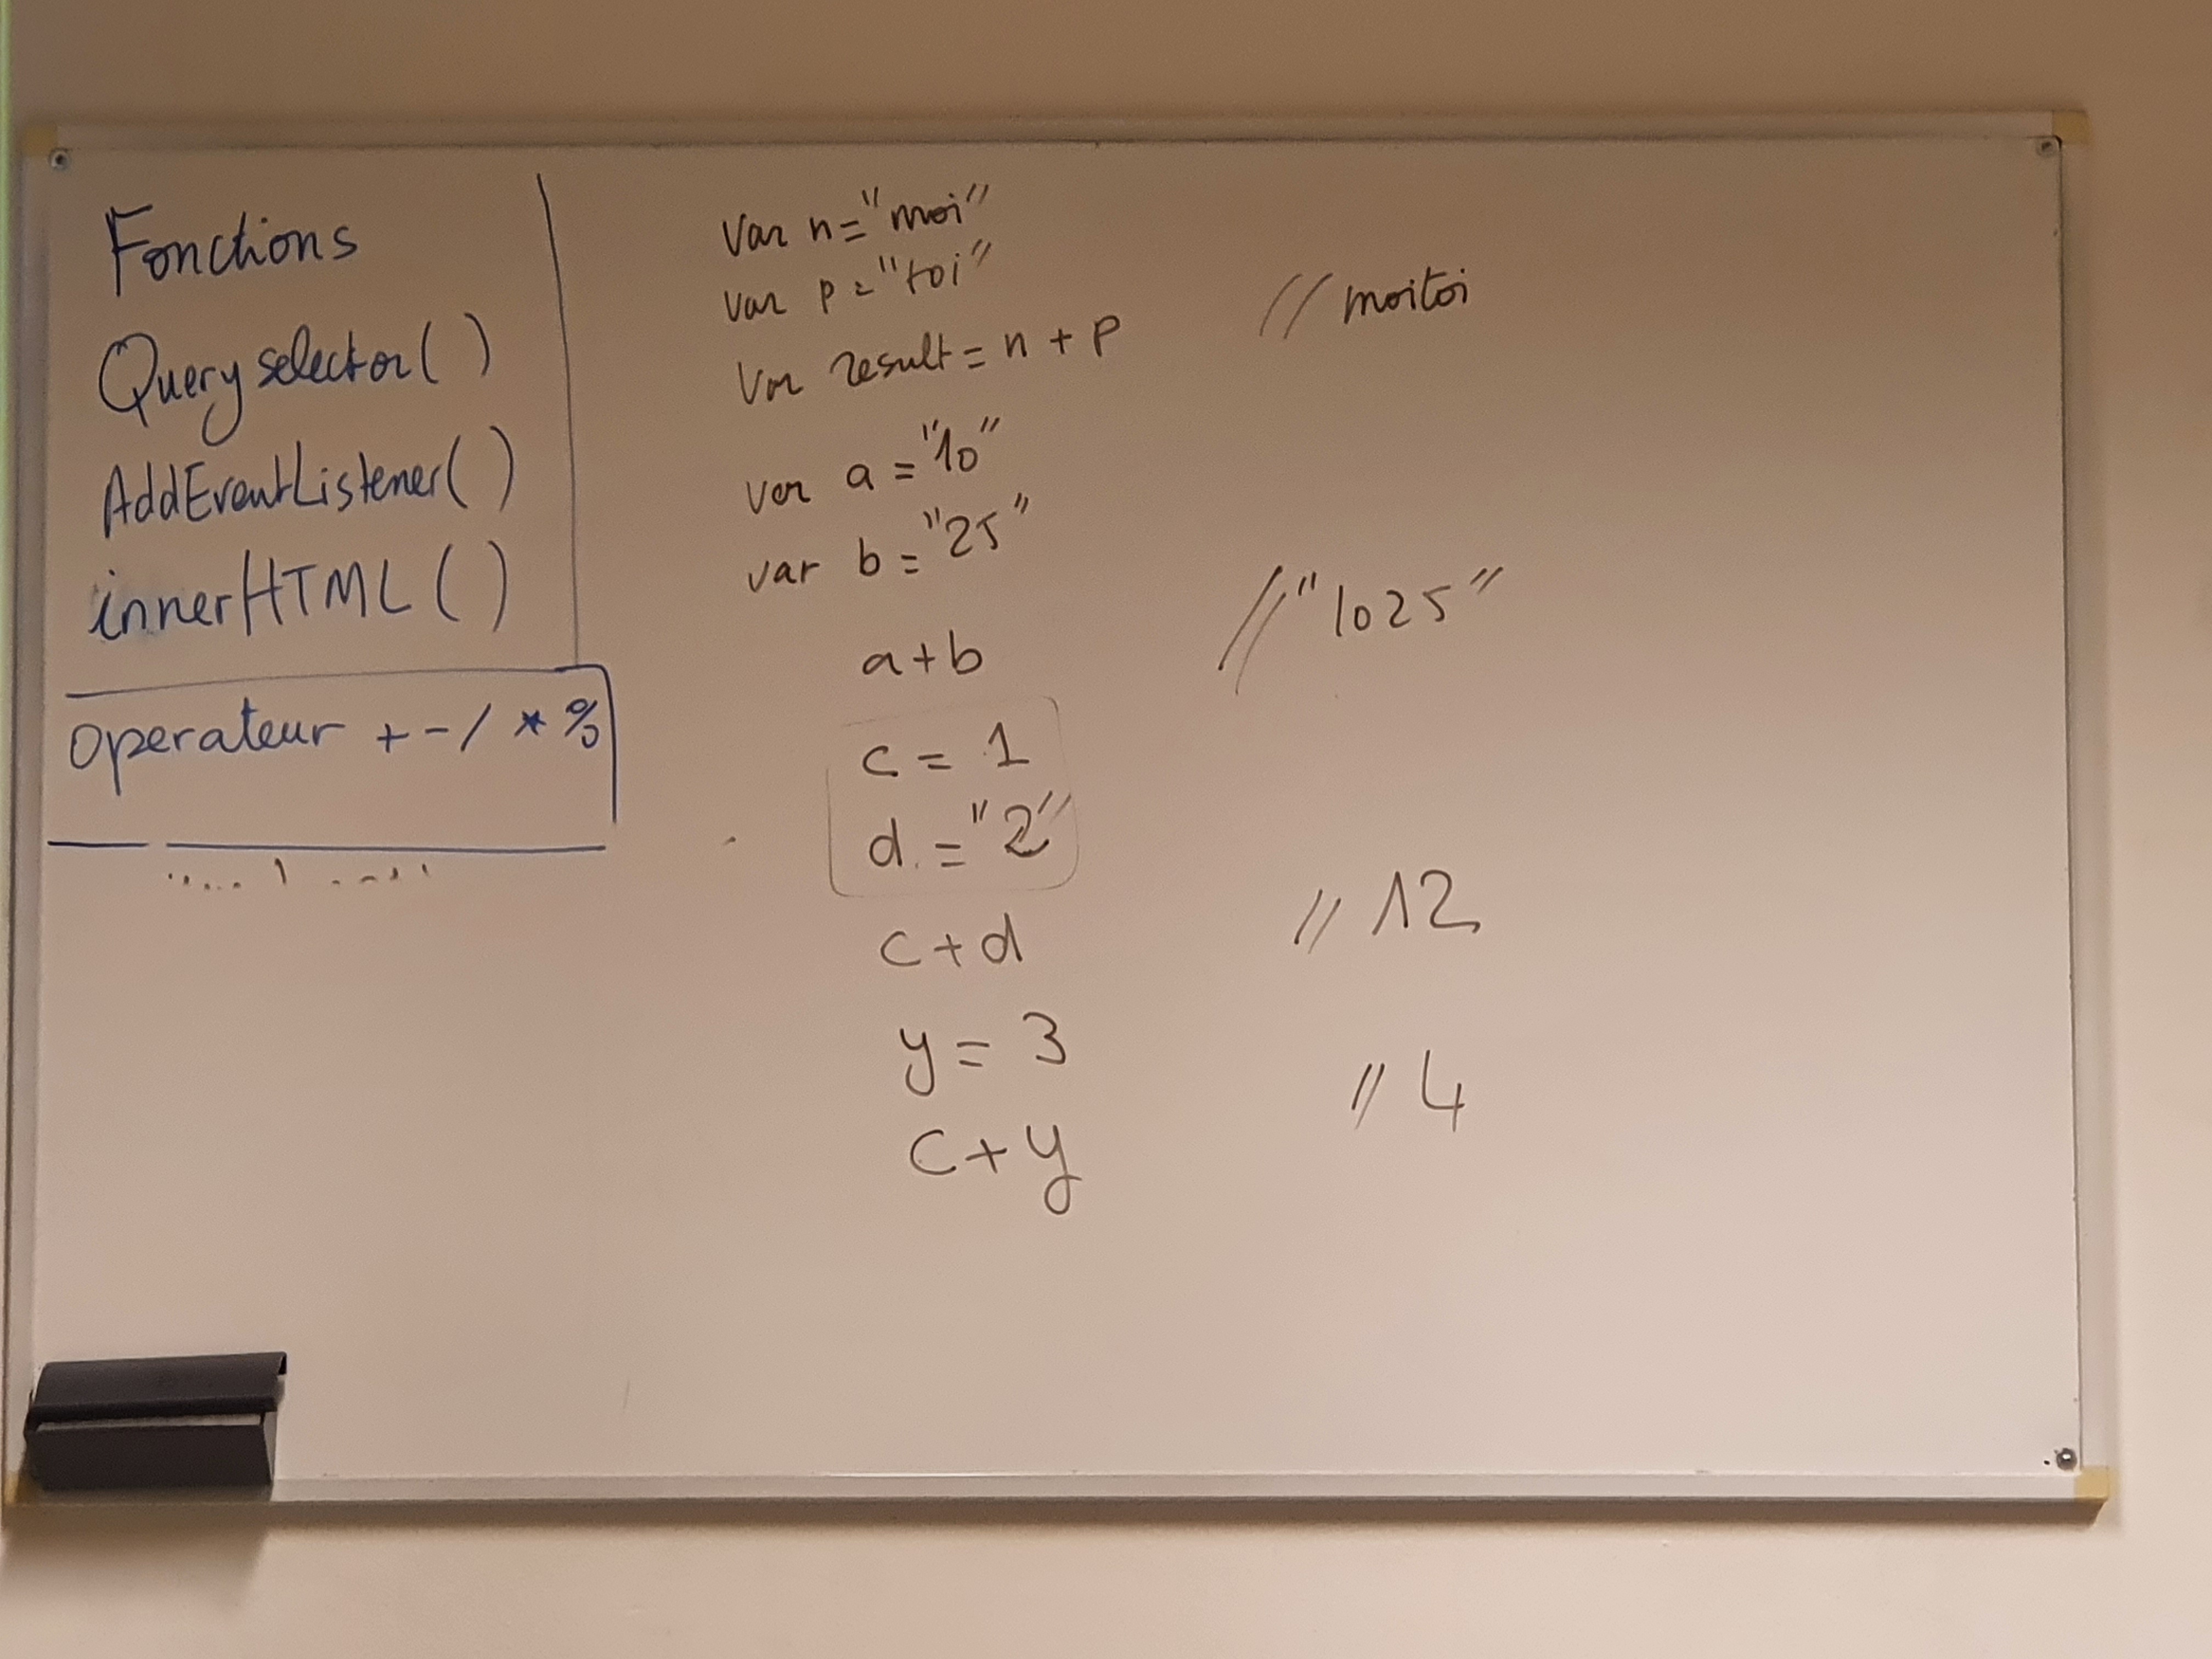 Fonctions
Query selector( )
AddEventListener( )
innerHTML ( )
operateur + - / * %
var n = "moi"
var p = "toi"
var result = n + p
// moitoi
var a = "10"
var b = "25"
a + b
// "1025"
c = 1
d = "2"
c + d
// 12
y = 3
// 4
c + y